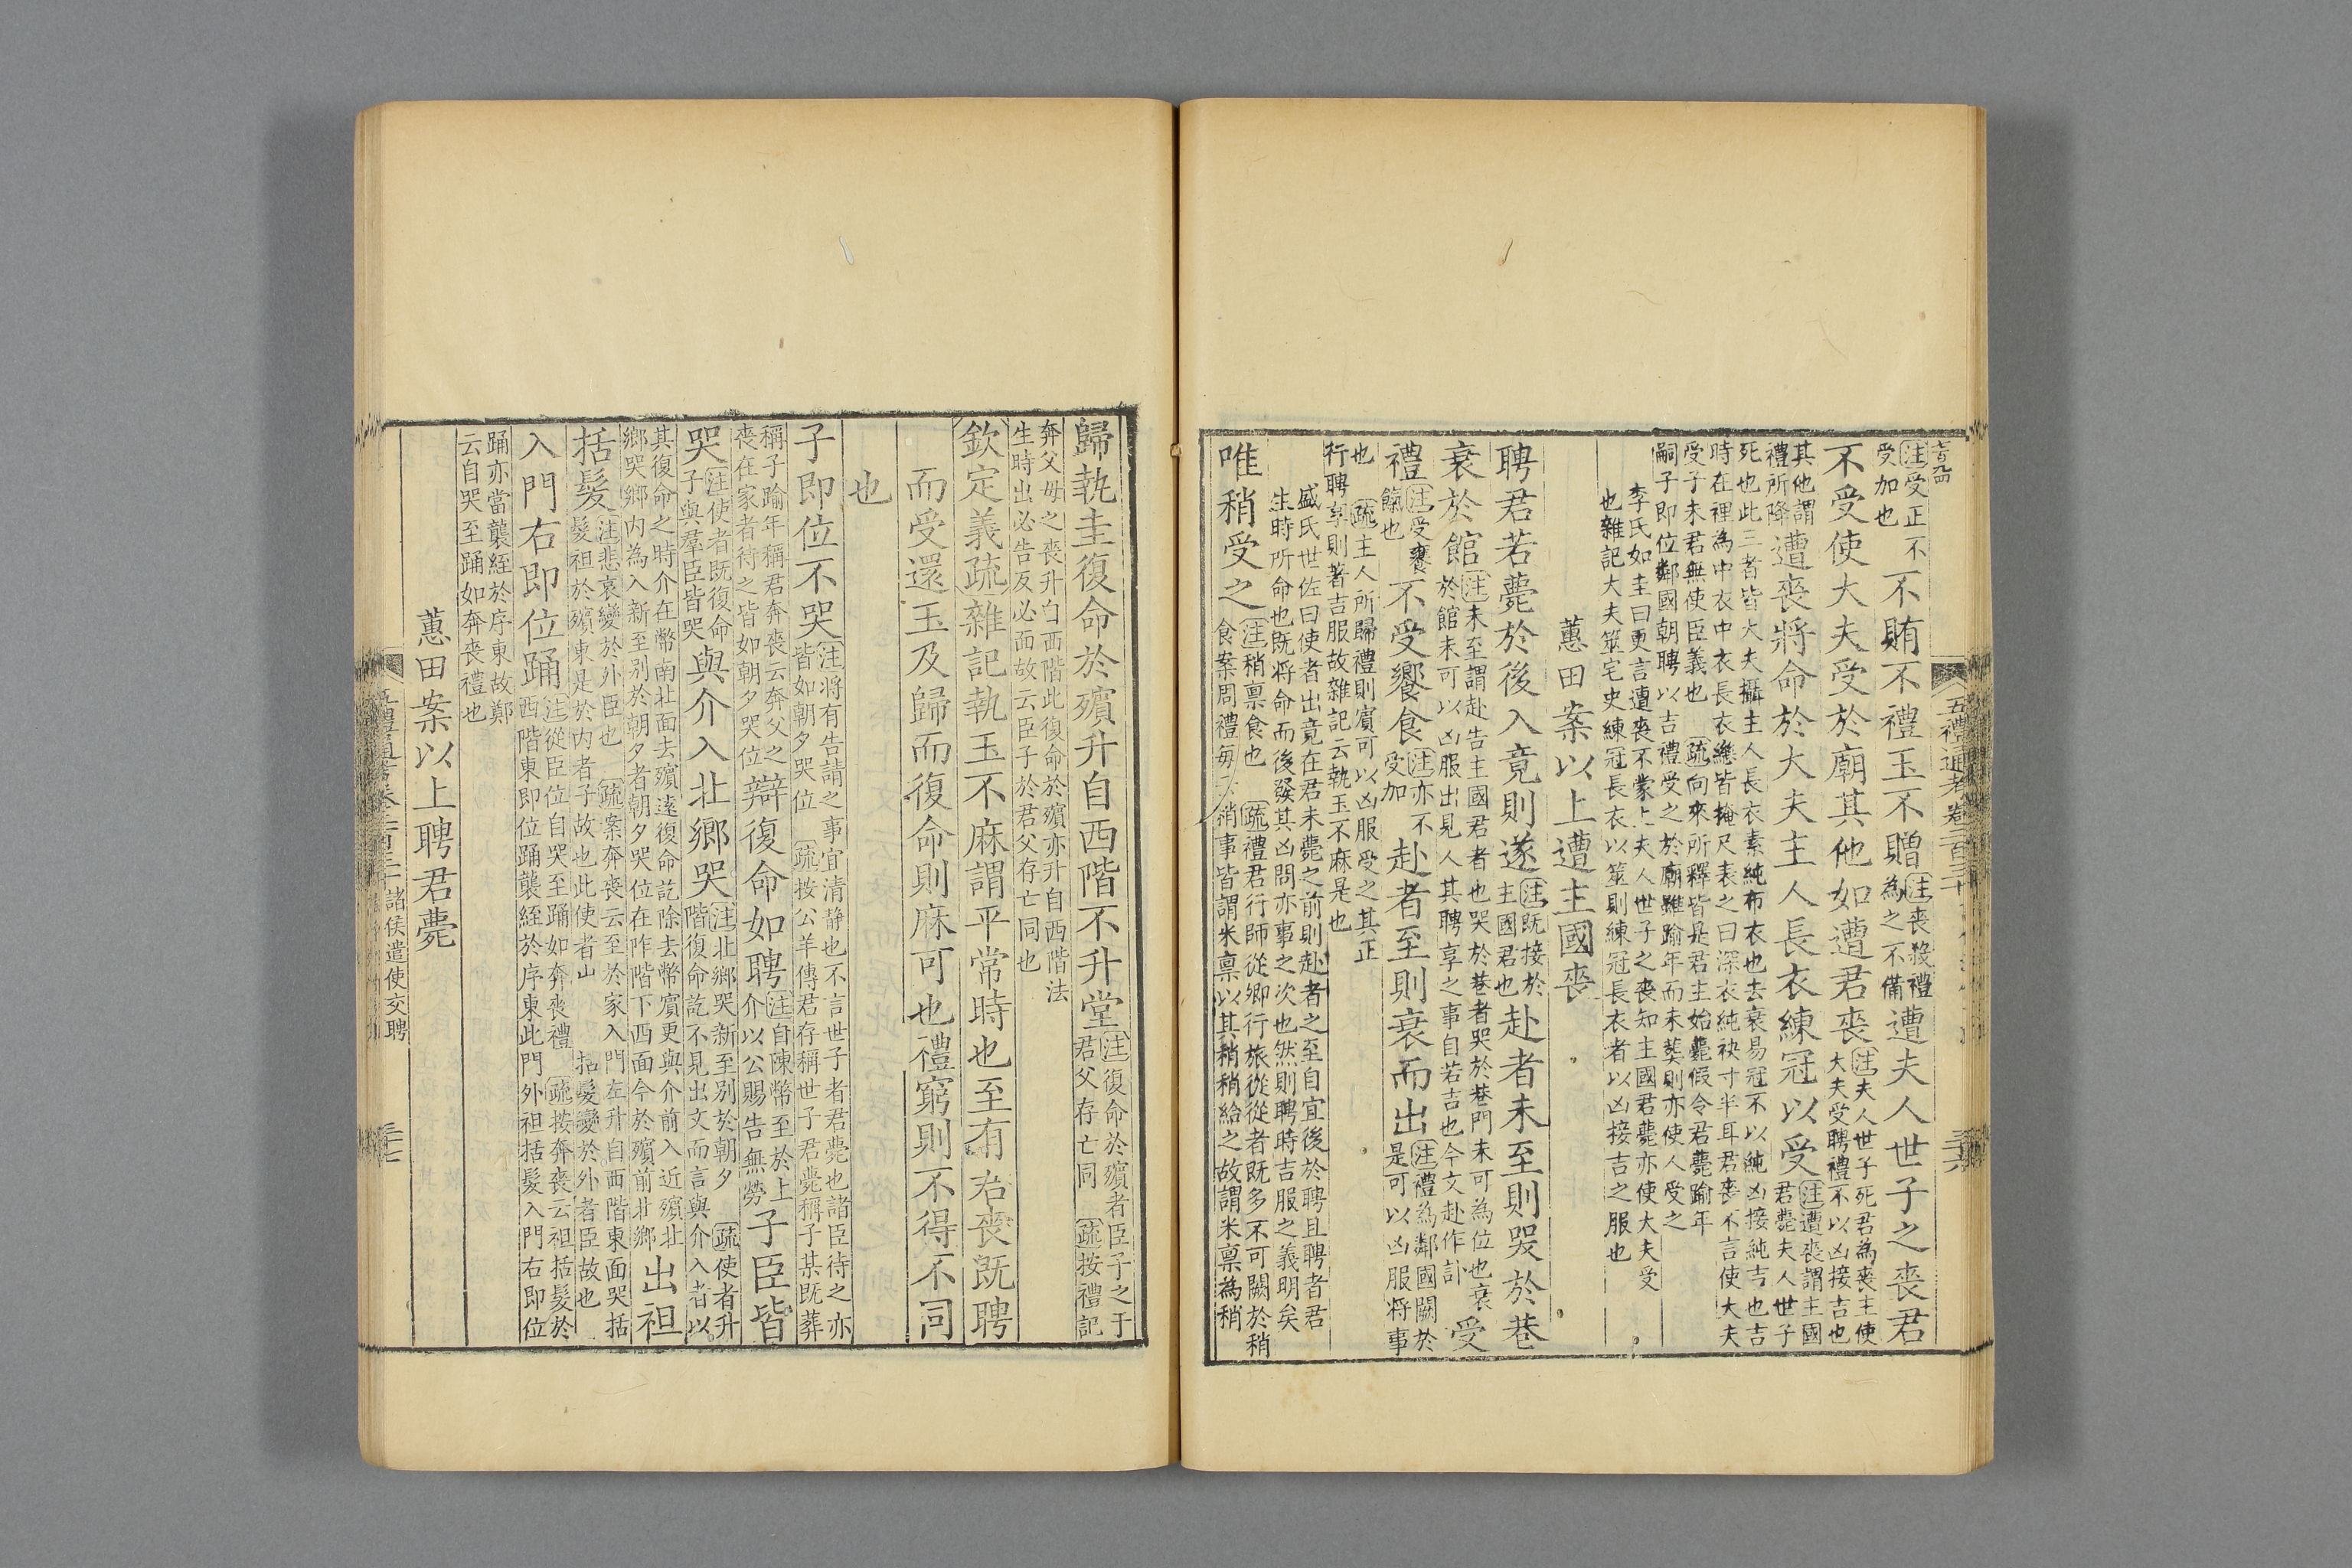 五禮通考卷二百三十
三十六
注受正不受加也不賄不禮玉不贈注喪殺禮為之不備遭夫人世子之喪君
不受使大夫受於廟其他如遭君喪注夫人世子死君為喪主使大夫受聘禮不以凶接吉也
其他謂禮所降遭喪將命於大夫主人長衣練冠以受注遭喪謂主國君薨夫人世子
死也此三者皆大夫攝主人長衣素純布衣也去衰易冠不以純凶接純吉也吉
時在裡為中衣中衣長衣繼皆掩尺表之曰深衣純袂寸半耳君喪不言使大夫
受子未君無使臣義也 疏向來所釋皆是君主始薨假令君薨踰年
嗣子即位鄰國朝聘以吉禮受之於廟雖踰年而未葬則亦使人受之
李氏如圭曰更言遭喪不蒙上夫人世子之喪知主國君薨亦使大夫受
也雜記大夫筮宅史練冠長衣以筮則練冠長衣者以凶接吉之服也
蕙田案以上遭主國喪
聘君若薨於後入竟則遂注既接於主國君也赴者未至則哭於巷
衰於館注未至謂赴告主國君者也哭於巷者哭於巷門未可為位也衰於館未可以凶服出見人其聘享之事自若吉也今文赴作訃受
禮注受饔餼也不受饗食注亦不受加赴者至則衰而出注禮為鄰國闕於是可以凶服將事
也 疏主人所歸禮則賓可以凶服受之其正
行聘享則著吉服故雜記云執玉不麻是也
盛氏世佐曰使者出竟在君未薨之前則赴者之至自宜後於聘且聘者君
生時所命也既將命而後發其凶問亦事之次也然則聘時吉服之義明矣
唯稍受之注稍稟食也 疏禮君行師從卿行旅從從者既多不可闕於稍食案周禮每云稍事皆謂米稟以其稍稍給之故謂米稟為稍
歸執圭復命於殯升自西階不升堂注復命於殯者臣子之于君父存亡同 疏按禮記
奔父母之喪升自西階此復命於殯亦升自西階法
生時出必告反必面故云臣子於君父存亡同也
欽定義疏雜記執玉不麻謂平常時也至有君喪既聘
而受還玉及歸而復命則麻可也禮窮則不得不同
也
子即位不哭注將有告請之事宜清静也不言世子者君薨也諸臣待之亦皆如朝夕哭位 疏按公羊傳君存稱世子君薨稱子某既葬
稱子踰年稱君奔喪云奔父之喪在家者待之皆如朝夕哭位辯復命如聘注自陳幣至於上介以公賜告無勞子臣皆
哭注使者既復命子與羣臣皆哭與介入北鄉哭注北鄉哭新至别於朝夕 疏使者升階復命訖不見出文而言與介入者以
其復命之時介在幣南北面去殯遠復命訖除去幣賓更與介前入近殯北鄉哭鄉內為入新至别於朝夕者朝夕哭位在阼階下西面今於殯前北鄉出袒
括髮注悲哀變於外臣也 疏案奔喪云至於家入門左升自西階東面哭括髮袒於殯東是於內者子故也此使者出括髮變於外者臣故也
入門右即位踊注從臣位自哭至踊如奔喪禮 疏按奔喪云袒括髮於西階東即位踊襲絰於序東此門外袒括髮入門右即位
踊亦當襲絰於序東故鄭
云自哭至踊如奔喪禮也
蕙田案以上聘君薨
諸侯遣使交聘
三十七